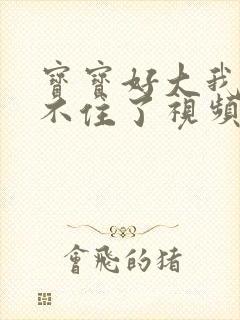 寶寶好大我
不住了視頻
會飛的猪